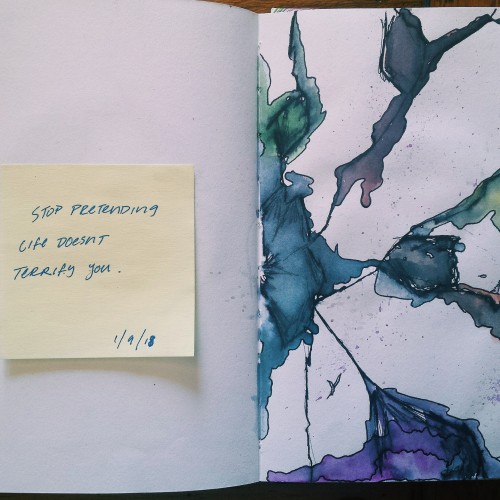 STOP PRETENDING
LIFE DOESNT
TERRIFY YOU.
1/9/18